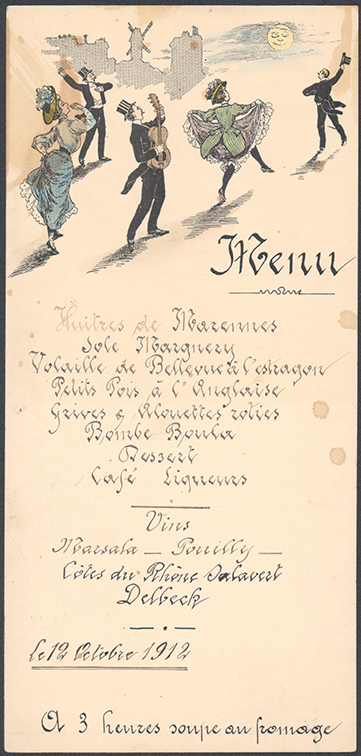 Menu
Huitres de Marennes
Sole Marguery
Volaille de Bellevue à l'estragon
Petits Pois à l'Anglaise
Grives & Alouettes roties
Bombe Boula
Dessert
Café Liqueurs
Vins
Marsala _ Pouilly _
Côtes du Rhône Salavert
Delbeck
le 12 Octobre 1912
A 3 heures soupe au fromage